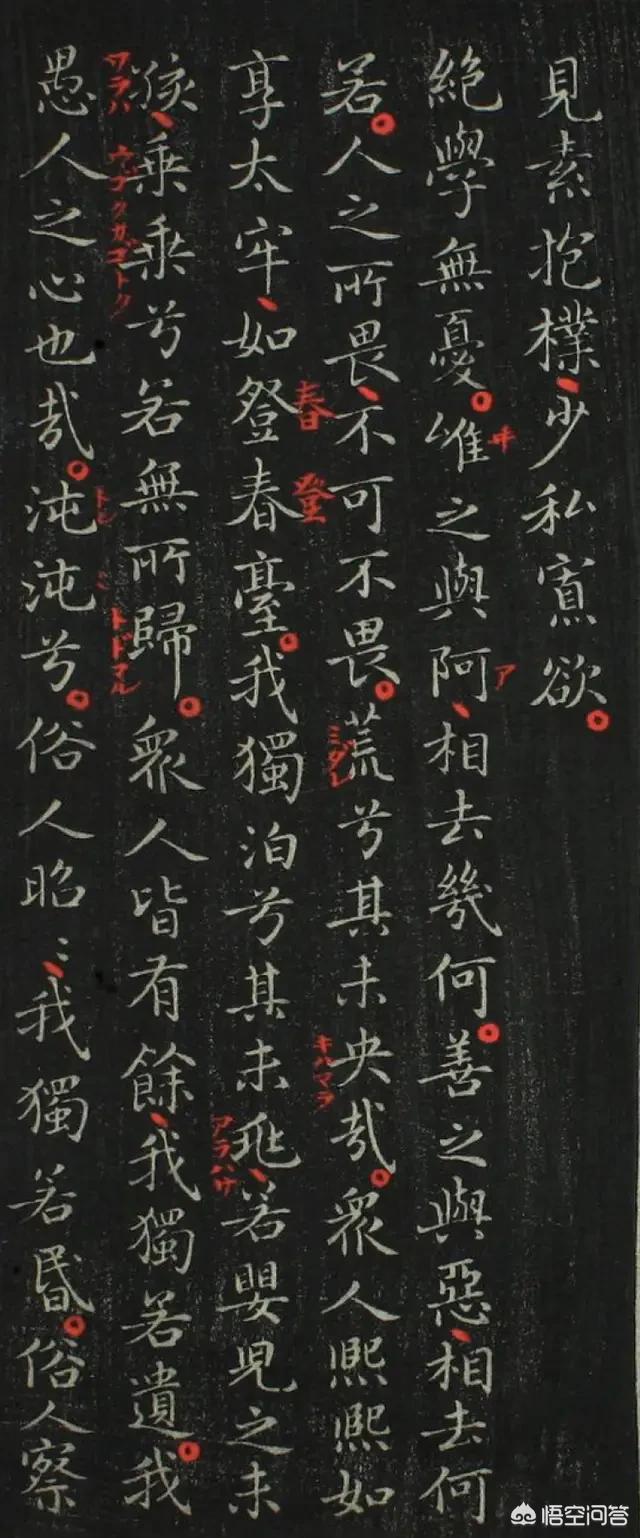 見素抱樸、少私寡欲。
絕學無憂。唯之與阿、相去幾何。善之與惡、相去何
ヰ
ア
若。人之所畏、不可不畏。荒兮其未央哉。眾人熙熙如
ミダレ
キハマラ
享太牢、如登春臺。我獨泊兮其未兆、若嬰兒之未
春
登
アラハサ
孩、乗乗兮若無所歸。眾人皆有餘、我獨若遺。我
ワラハ
ガゴトク
トドマル
愚人之心也哉。沌沌兮。俗人昭〻、我獨若昬。俗人察
トン
悟空问答